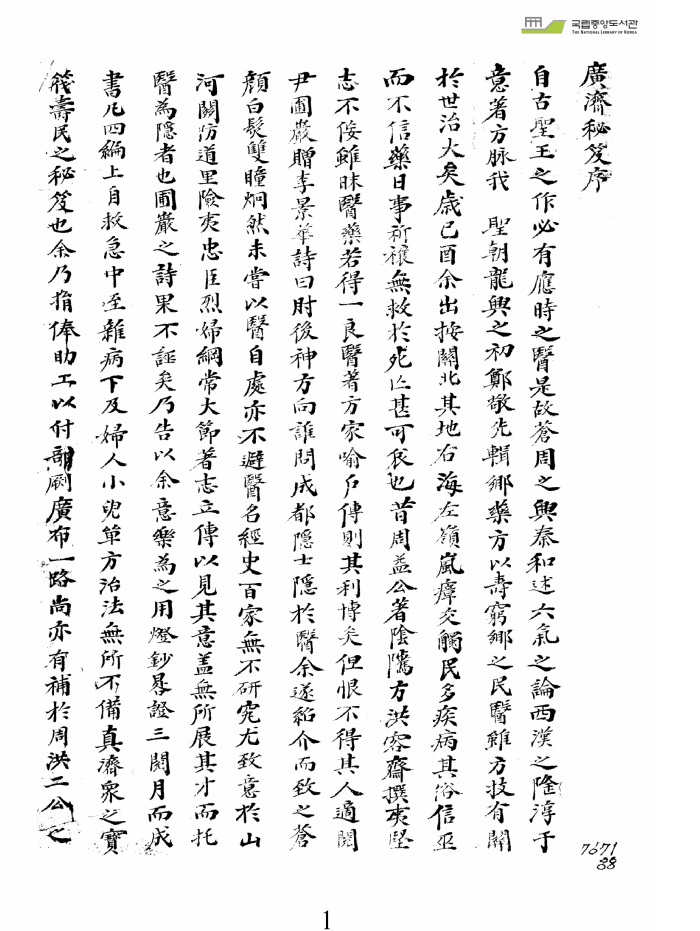 국립중앙도서관
THE NATIONAL LIBRARY OF KOREA
廣濟秘笈序
自古聖王之作必有應時之醫是故蒼周之興泰和述六氣之論西漢之隆淳于
意著方脉我 聖朝龍興之初鄭敬先輯鄉藥方以壽窮鄉之民醫雖方技有關
於世治大矣歲己酉余出按關北其地右海左嶺嵐瘴交觸民多疾病其俗信巫
而不信藥日事祈禳無救於死亡甚可哀也昔周益公著陰隲方洪容齋撰夷堅
志不侫雖昧醫藥若得一良醫著方家喻戶傳則其利博矣但恨不得其人適閱
尹圃巖贈李景華詩曰肘後神方向誰問成都隱士隱於醫余遂紹介而致之蒼
顔白髮雙瞳炯然未嘗以醫自處亦不避醫名經史百家無不研究尤致意於山
河關防道里險夷忠臣烈婦綱常大節著志立傳以見其意盖無所展其才而托
醫為隱者也圃巖之詩果不誣矣乃告以余意樂為之用燈鈔晷證三閱月而成
書凡四編上自救急中至雜病下及婦人小兒單方治法無所不備真濟衆之寶
筏壽民之秘笈也余乃捐俸助工以付剞劂廣布一路尚亦有補於周洪二公之
7671
88
1